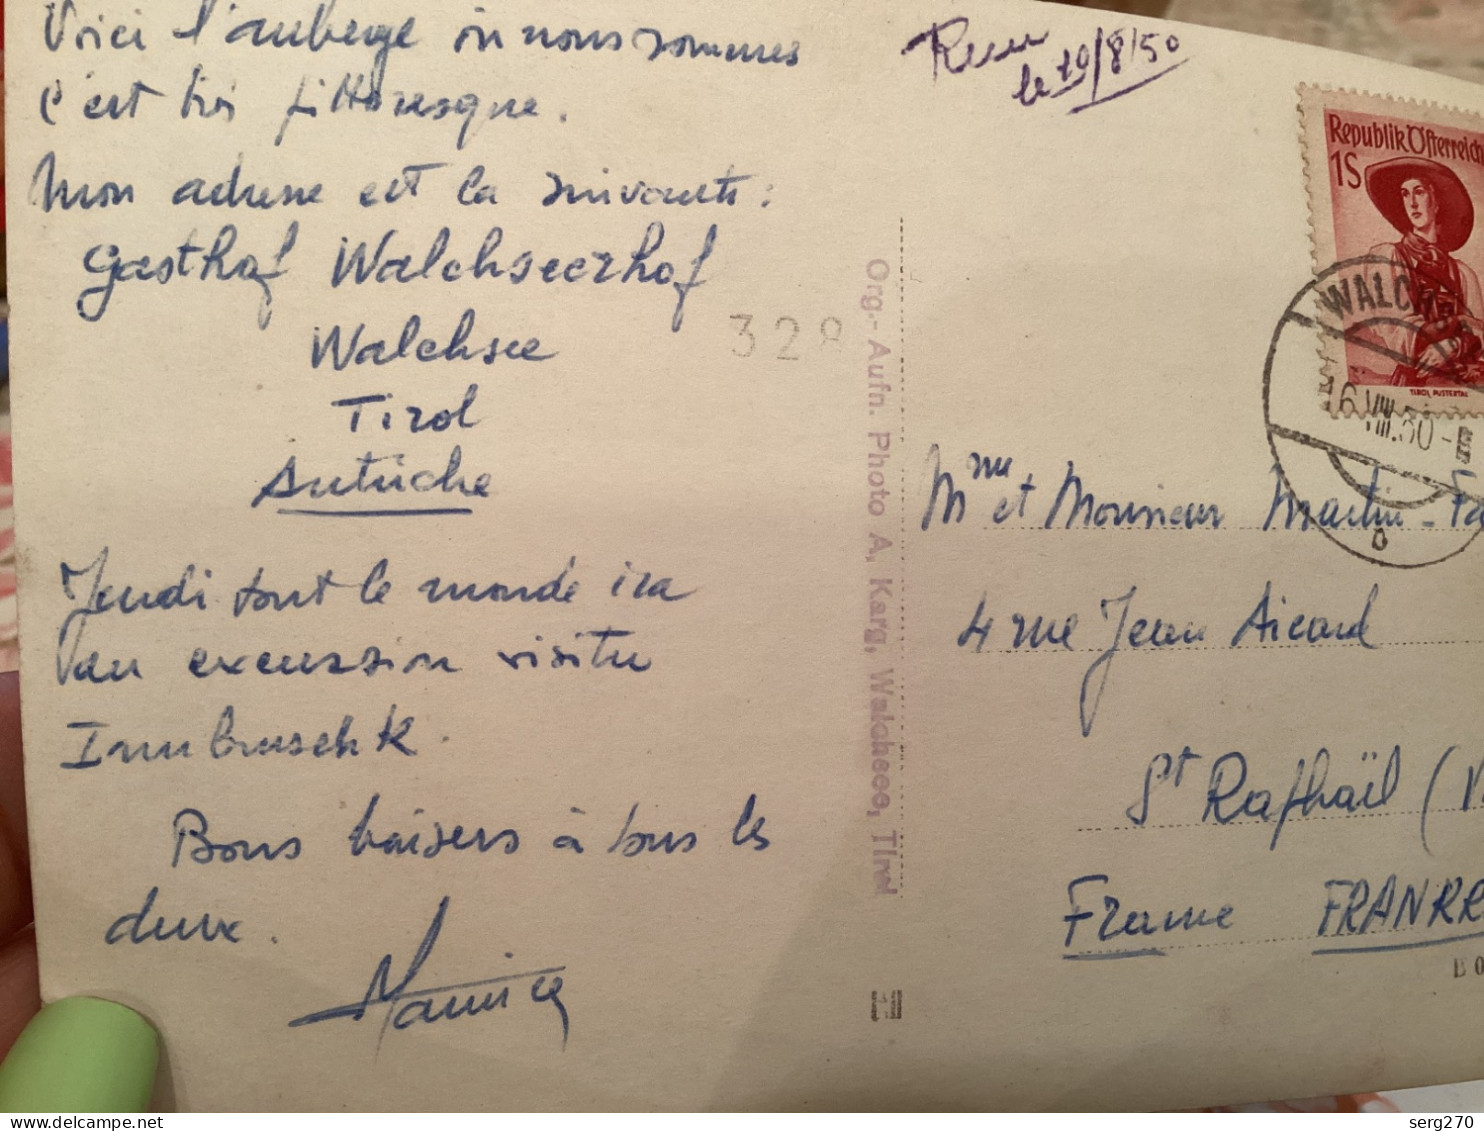 Voici l'auberge où nous sommes
C'est très pittoresque.
Mon adresse est la suivante :
Gasthof Walchseerhof
Walchsee
Tirol
Autriche
Jeudi tout le monde ira
en excursion visiter
Innsbruschk.
Bons baisers à tous les
deux.
Maurice
Recu
le 19/8/50
328
Org.- Aufn. Photo A. Karg, Walchsee, Tirol
Republik Österreich
1S
TIROL PUSTERTAL
WALCH
16.VIII.50
b
Mme et Monsieur Martin - Fa
4 rue Jean Aicard
St Raphaël (V
France FRANKR
BO
serg270
delcampe.net